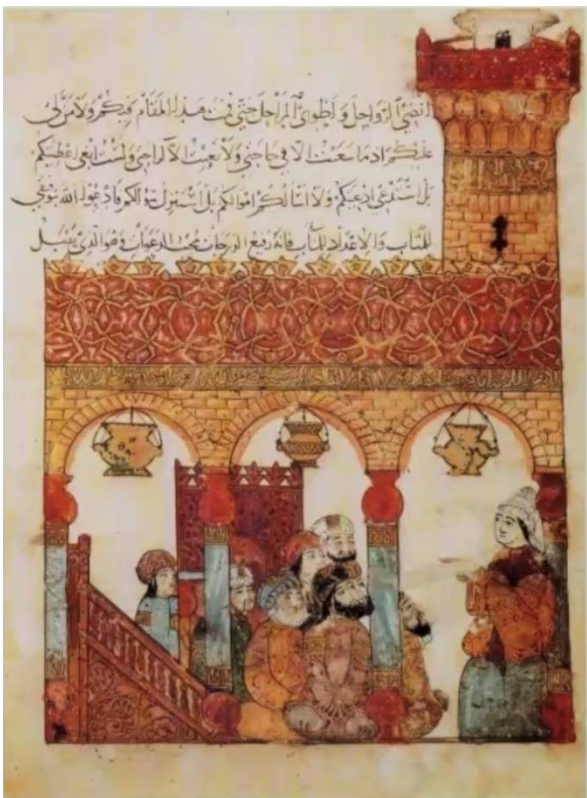 انضي الرواحل واطوي المراحل حتى قمت هذا المقام فيكم ولا من لي
عليكم اذ ما سعيت الا في حاجتي ولا تعبت الا لراحتي ولست ابغي اعطيتكم
بل استدعي ادعيتكم ولا اسالكم اموالكم بل استنزل سوالكم فادعوا الله بتوفيقي
للمتاب والاعداد للماب فانه رفيع الدرجات مجيب الدعوات وهو الذي يقبل